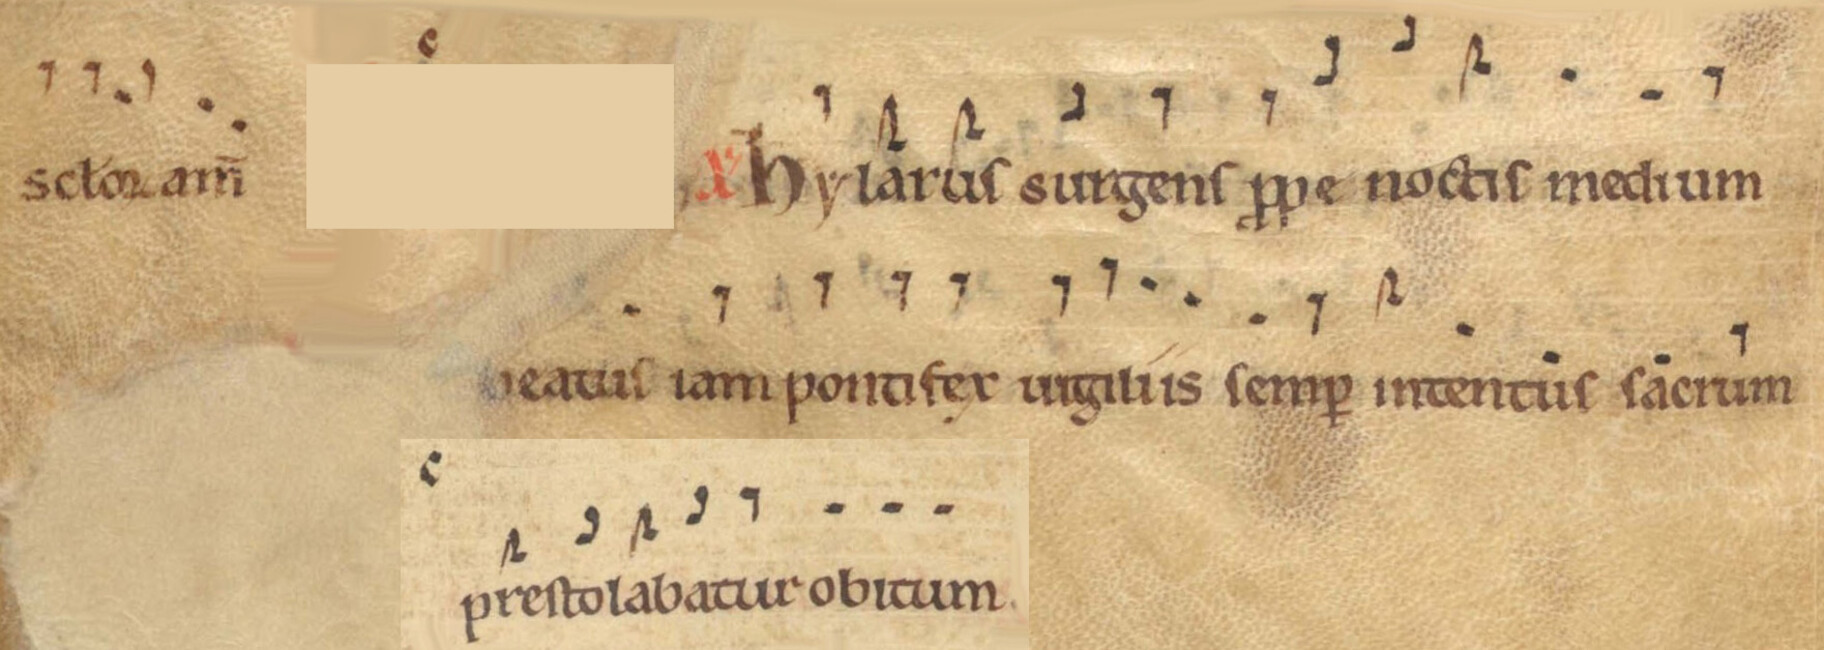 sctoꝝ am̄ xp̄ hylarus surgens ꝓpe noctis medium
beatus iam pontifex uigiliis semꝑ intentus sacrum
prestolabatur obitum.